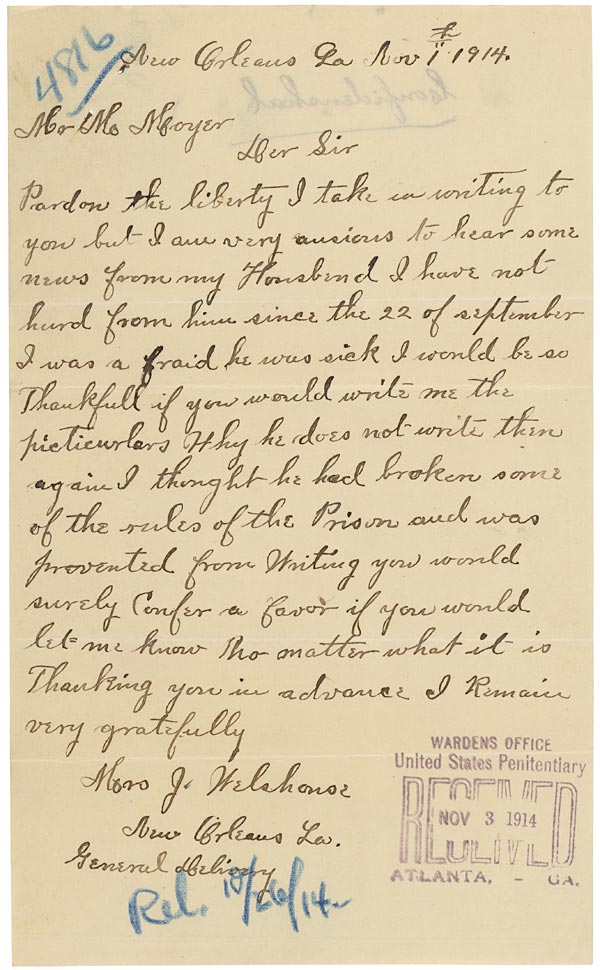 4816
New Orleans La Nov 1th 1914.
Mr Mc Moyer
Der Sir
Pardon the liberty I take in writing to
you but I am very ansious to hear some
news from my Housbend I have not
hurd from him since the 22 of september
I was a fraid he was sick I would be so
Thankfull if you would write me the
picticurlars Why he does not write then
again I thought he had broken some
of the rules of the Prison and was
provented from Writing you would
surely Confer a favor if you would
let me know Mo matter what it is
Thanking you in advance I Remain
very gratefully
Mrs J. Welshouse
New Orleans La.
General Delivery
Rel. 10/26/14
WARDENS OFFICE
United States Penitentiary
RECEIVED
NOV 3 1914
ATLANTA, - GA.